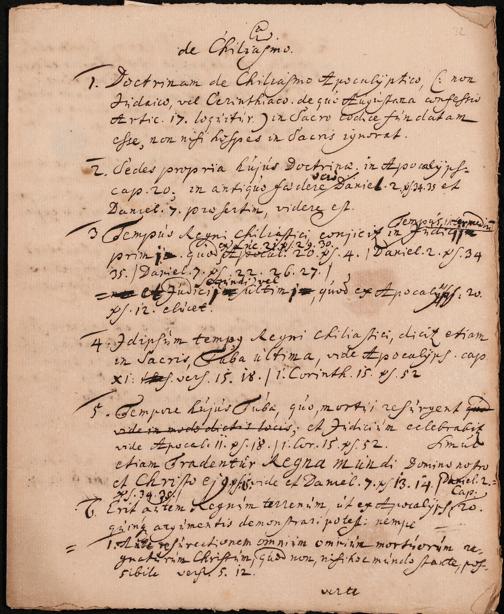 de Chiliasmo.
1. Doctrinam de Chiliasmo Apocalyptico, (: non
Judaico, vel Cerinthiaco. de quo Augustana confessio
Artic. 17. loqvitur) in Sacro codice fundatam
esse, non nisi hospes in Sacris ignorat.
2. Sedes propria hujus Doctrinæ, in Apocalyps.
cap. 20. in antiquo foedere vero Daniel. 2. ps. 34. 35 et
Daniel. 7. prosertim, videre est.
3 Tempus Regni Chiliastici conjicit in Tempus intermedium Judicium
primum. quod Apocal. 20. ps. 4. | Daniel. 2. ps. 34
35. | Daniel. 7. ps. 22. 26. 27. |
et Judicium ultimum, quod ex Apocalyps. 20.
ps. 12. elucet.
4. Idipsum tempus Regni Chiliastici, dicit etiam
in Sacris, Tuba ultima, vide Apocalyps. cap
XI. vers. 15. 18. | 1. Corinth. 15. ps. 52
5. Tempore hujus Tubæ, quo, mortui resurgent
vide in modo dictis locis, et Judicium celebrabit
vide Apocal. 11. ps. 18. | 1. Cor. 15. ps. 52. Simul
etiam Tradentur Regna mundi Domino nostro
et Christo ejus, vide et Daniel. 7. ps. 13. 14. | Daniel. 2.
Cap.
ps. 34. 35. |
6. Erit autem Regnum terrenum, ut ex Apocalyps. 20.
argumentis demonstrari potest. nempe
1. Ante resurectionem omnium omnium mortuorum re-
gnaturum Christum, quod non, nisi hoc mundo stante, pos-
sibile vers. 5. 12.
verte